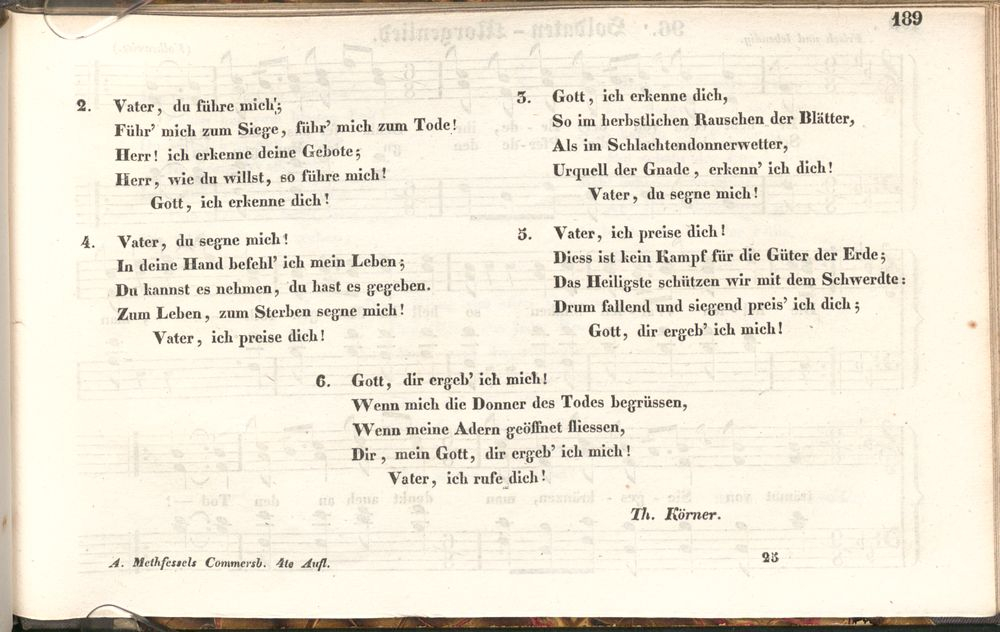 189
2. Vater, du führe mich;
Führ' mich zum Siege, führ' mich zum Tode!
Herr! ich erkenne deine Gebote;
Herr, wie du willst, so führe mich!
Gott, ich erkenne dich!
3. Gott, ich erkenne dich,
So im herbstlichen Rauschen der Blätter,
Als im Schlachtendonnerwetter,
Urquell der Gnade, erkenn' ich dich!
Vater, du segne mich!
4. Vater, du segne mich!
In deine Hand befehl' ich mein Leben;
Du kannst es nehmen, du hast es gegeben.
Zum Leben, zum Sterben segne mich!
Vater, ich preise dich!
5. Vater, ich preise dich!
Diess ist kein Kampf für die Güter der Erde;
Das Heiligste schützen wir mit dem Schwerdte:
Drum fallend und siegend preis' ich dich;
Gott, dir ergeb' ich mich!
6. Gott, dir ergeb' ich mich!
Wenn mich die Donner des Todes begrüssen,
Wenn meine Adern geöffnet fliessen,
Dir, mein Gott, dir ergeb' ich mich!
Vater, ich rufe dich!
Th. Körner.
A. Methfessels Commersb. 4te Aufl.
25